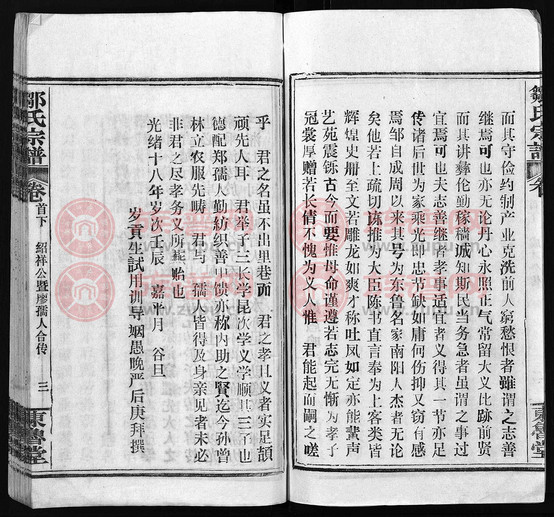 而其守俭约制产业克洗前人窮愁恨者雖谓之志善
继焉可也亦无论丹心永照正气常留大义比跡前贤
而其讲彝伦勤稼穑诚知斯民当务急者虽谓之事过
宜焉可也夫志善继者孝事适宜者义得其一节亦足
传诸后世为家乘光即忠缺如庸何伤抑又窃有感
焉邹自成周以来其号为东鲁名家南阳人杰者无论
矣他若上疏切谏推为大臣陈书直言奉为上客类皆
辉煌史册至文若雕龙如爽才称吐凤如定亦能蜚声
艺苑震铄古今而要惟母命谨遵若志完无惭为孝子
冠裳厚赠若长倩不愧为义人惟 君能起而嗣之嗟
乎 君之名虽不出里巷而 君之孝且义者实足颉
顽先人耳 君举丁三长学昆次学义学顺其三子也
德配郑孺人勤纺织善中馈亦称内助之賢迄今孙曾
林立农服先畴 君与 孺人皆得及身亲见者未必
非君之尽孝务义所貽也
光绪十八年岁次壬辰 嘉平月 谷旦
岁貢生試用训导姻愚晚严后庚拜撰
鄒氏宗譜
卷首下
绍祥公暨廖孺人合传
三
東魯堂
鄒氏宗譜
東魯堂